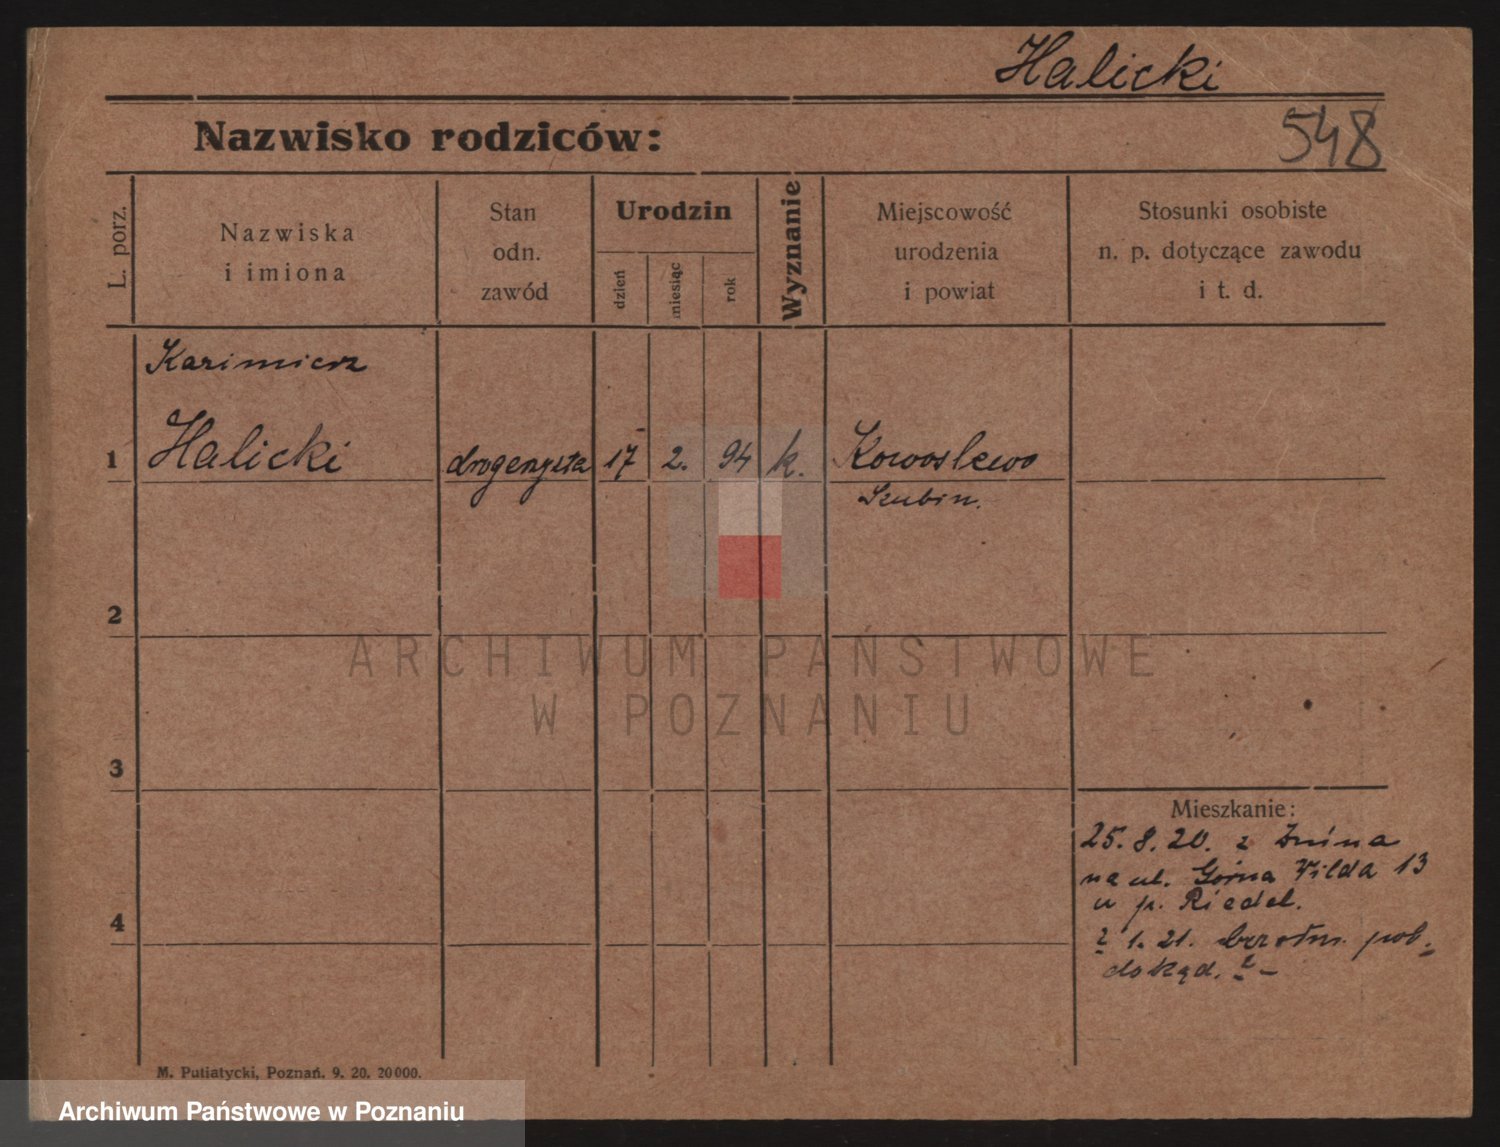 Halicki
Nazwisko rodziców:
548
L. porz.
Nazwiska
i imiona
Stan
odn.
zawód
Urodzin
dzień
miesiąc
rok
Wyznanie
Miejscowość
urodzenia
i powiat
Stosunki osobiste
n. p. dotyczące zawodu
i t. d.
Kazimierz
1 Halicki drogerzysta 17 2. 94 k.
Szubin.
2
3
4
Mieszkanie:
25. 8. 20. z Żnina
na ul. Górna Wilda 13
u p. Riedel.
1. 21. pob.
dokąd.
M. Putiatycki, Poznań. 9. 20. 20000.
ARCHIWUM PAŃSTWOWE
W POZNANIU
Archiwum Państwowe w Poznaniu